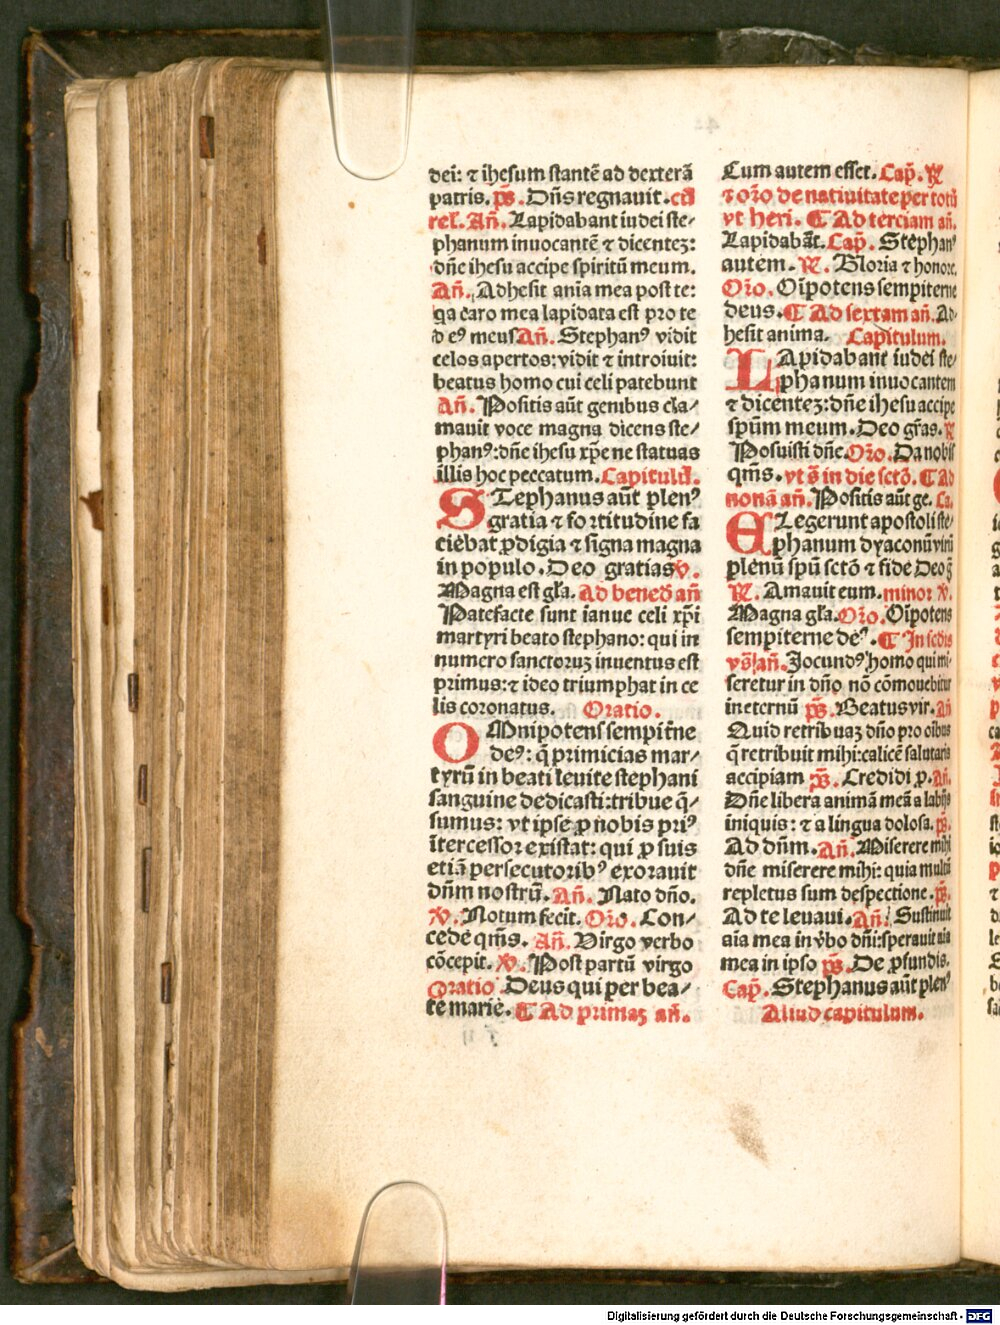 dei: ⁊ ihesum stantē ad dexterā
patris. p̄s. Dn̄s regnauit. cū
rel. An̄. Lapidabant iudei ste⸗
phanum inuocantē ⁊ dicentez:
dn̄e ihesu accipe spiritū meum.
An̄. Adhesit anīa mea post te:
qa caro mea lapidata est pro te
d eꝰ meus An̄. Stephanꝰ vidit
celos apertos: vidit ⁊ introiuit:
beatus homo cui celi patebunt
An̄. Positis aūt genibus cla⸗
mauit voce magna dicens ste⸗
phanꝰ: dn̄e ihesu xp̄e ne statuas
illis hoc peccatum. Capitulū.
STephanus aūt plenꝰ
gratia ⁊ fortitudine fa
ciebat ꝓdigia ⁊ signa magna
in populo. Deo gratias ℣.
Magna est gl̄a. Ad bened̄ an̄
Patefacte sunt ianue celi xp̄i
martyri beato stephano: qui in
numero sanctoruz inuentus est
primus: ⁊ ideo triumphat in ce
lis coronatus. Oratio.
OMnipotens sempit̄ne
deꝰ: q̄ primicias mar⸗
tyrū in beati leuite stephani
sanguine dedicasti: tribue q̄⸗
sumus: vt ipse ꝓ nobis priꝰ
ītercessor existat: qui ꝓ suis
etiā persecutoribꝰ exorauit
dn̄m nostrū. An̄. Nato dn̄o.
℣. Notum fecit. Or̄o. Con⸗
cede qm̄s. An̄. Virgo verbo
cōcepit. ℣. Post partū virgo
Oratio Deus qui per bea⸗
te marie. ¶ Ad primaz an̄.
Cum autem esset. Cap̄. ℟
⁊ or̄o de natiuitate per totū
vt heri. ¶ Ad terciam an̄.
Lapidabāt. Cap̄. Stephanꝰ
autem. ℟. Gloria ⁊ honore.
Or̄o. Oīpotens sempiterne
deus. ¶ Ad sextam an̄. Ad⸗
hesit anima. Capitulum.
LApidabant iudei ste⸗
phanum inuocantem
⁊ dicentez: dn̄e ihesu accipe
spūm meum. Deo gr̄as. ℟
Posuisti dn̄e. Or̄o. Da nobis
qm̄s. vt s̄ in die sctō. ¶ Ad
nonā an̄. Positis aūt ge. Ca.
ELegerunt apostoli ste⸗
phanum dyaconū virū
plenū spū sctō ⁊ fide Deo g̃
℟. Amauit eum. minor ℣.
Magna gl̄a. Or̄o. Oīpotens
sempiterne deꝰ. ¶ In scdis
vs̄ an̄. Jocundꝰ homo qui mi⸗
seretur in dn̄o nō cōmouebitur
in eternū p̄s. Beatus vir. An̄
Quid retribuaz dn̄o pro oībus
q̄ retribuit mihi: calicē salutaris
accipiam p̄s. Credidi ꝓ. An̄.
Dn̄e libera animā meā a labijs
iniquis: ⁊ a lingua dolosa. p̄s.
Ad dn̄m. An̄. Miserere mihi
dn̄e miserere mihi: quia multū
repletus sum despectione. p̄s.
Ad te leuaui. An̄. Sustinuit
aīa mea in v̄bo dn̄i: sperauit aīa
mea in ipso p̄s. De ꝓfundis.
Cap̄. Stephanus aūt plenꝰ
Aliud capitulum.
Digitalisierung gefördert durch die Deutsche Forschungsgemeinschaft - DFG